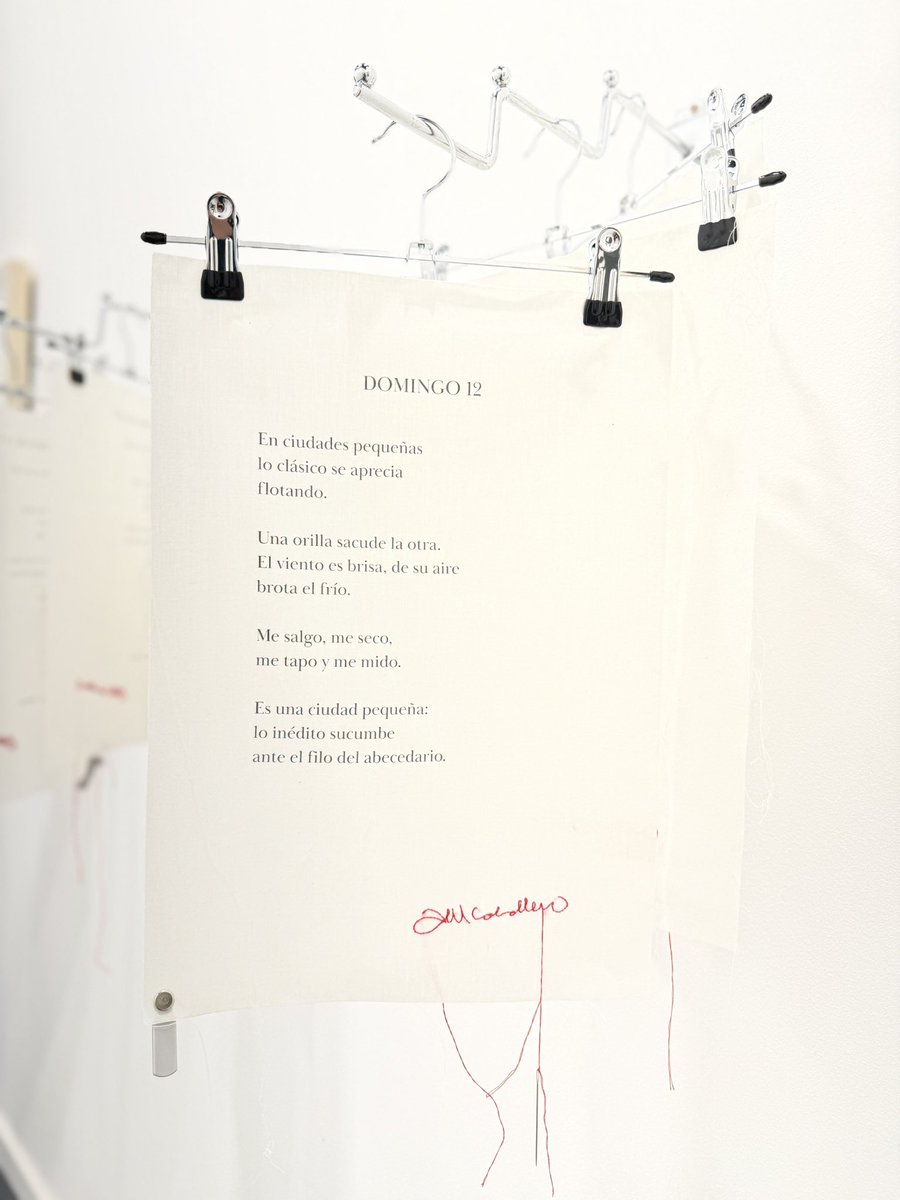 DOMINGO 12
En ciudades pequeñas
lo clásico se aprecia
flotando.
Una orilla sacude la otra.
El viento es brisa, de su aire
brota el frío.
Me salgo, me seco,
me tapo y me mido.
Es una ciudad pequeña:
lo inédito sucumbe
ante el filo del abecedario.